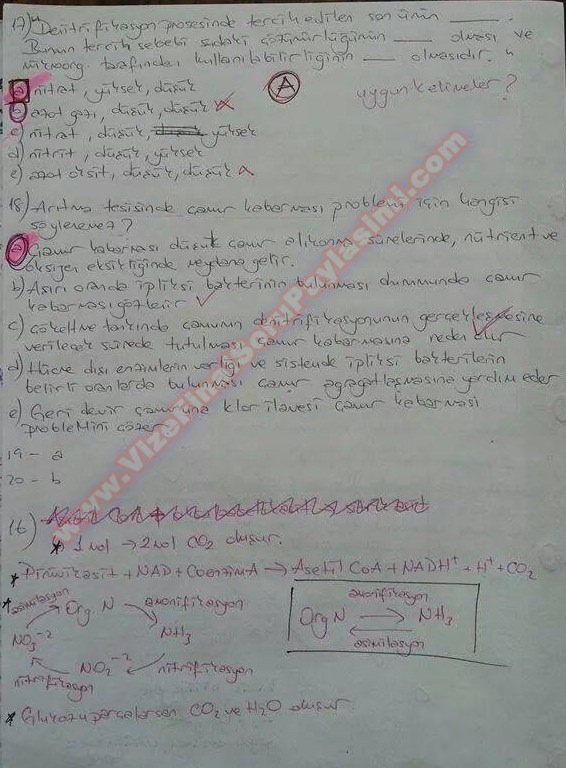 17) "Denitrifikasyon prosesinde tercih edilen son ürün ____.
Bunun tercih sebebi sudaki çözünürlüğünün ____ olması ve
mikroorg. tarafından kullanılabilirliğinin ____ olmasıdır."
uygun kelimeler?
A
a) nitrat, yüksek, düşük
b) azot gazı, düşük, düşük
c) nitrat, düşük, yüksek
d) nitrit, düşük, yüksek
e) azot oksit, düşük, düşük
18) Arıtma tesisinde çamur kabarması problemi için hangisi
söylenemez?
a) Çamur kabarması düşük çamur alıkonma sürelerinde, nütrient ve
oksijen eksikliğinde meydana gelir.
b) Aşırı oranda ipliksi bakterinin bulunması durumunda çamur
kabarması gözlenir
c) çökeltme tankında çamurun denitrifikasyonunun gerçekleşmesine
verilecek sürede tutulması çamur kabarmasına neden olur
d) Hücre dışı enzimlerin varlığı ve sistemde ipliksi bakterilerin
belirli oranlarda bulunması çamur agregatlaşmasına yardım eder
e) Geri devir çamuruna klor ilavesi çamur kabarması
problemini çözer
19 - a
20 - b
16)
* 1 mol → 2 mol CO2 oluşur.
* Pirüvikasit + NAD + CoenzimA → Asetil CoA + NADH+ + H+ + CO2
* asimilasyon Org. N amonifikasyon
NO3-2 NH3
NO2-2
nitrifikasyon nitrifikasyon
amonifikasyon
Org N → NH3
asimilasyon
* Glukozu parçalarsan CO2 ve H2O oluşur
www.VizeFinalSoruPaylasimi.com